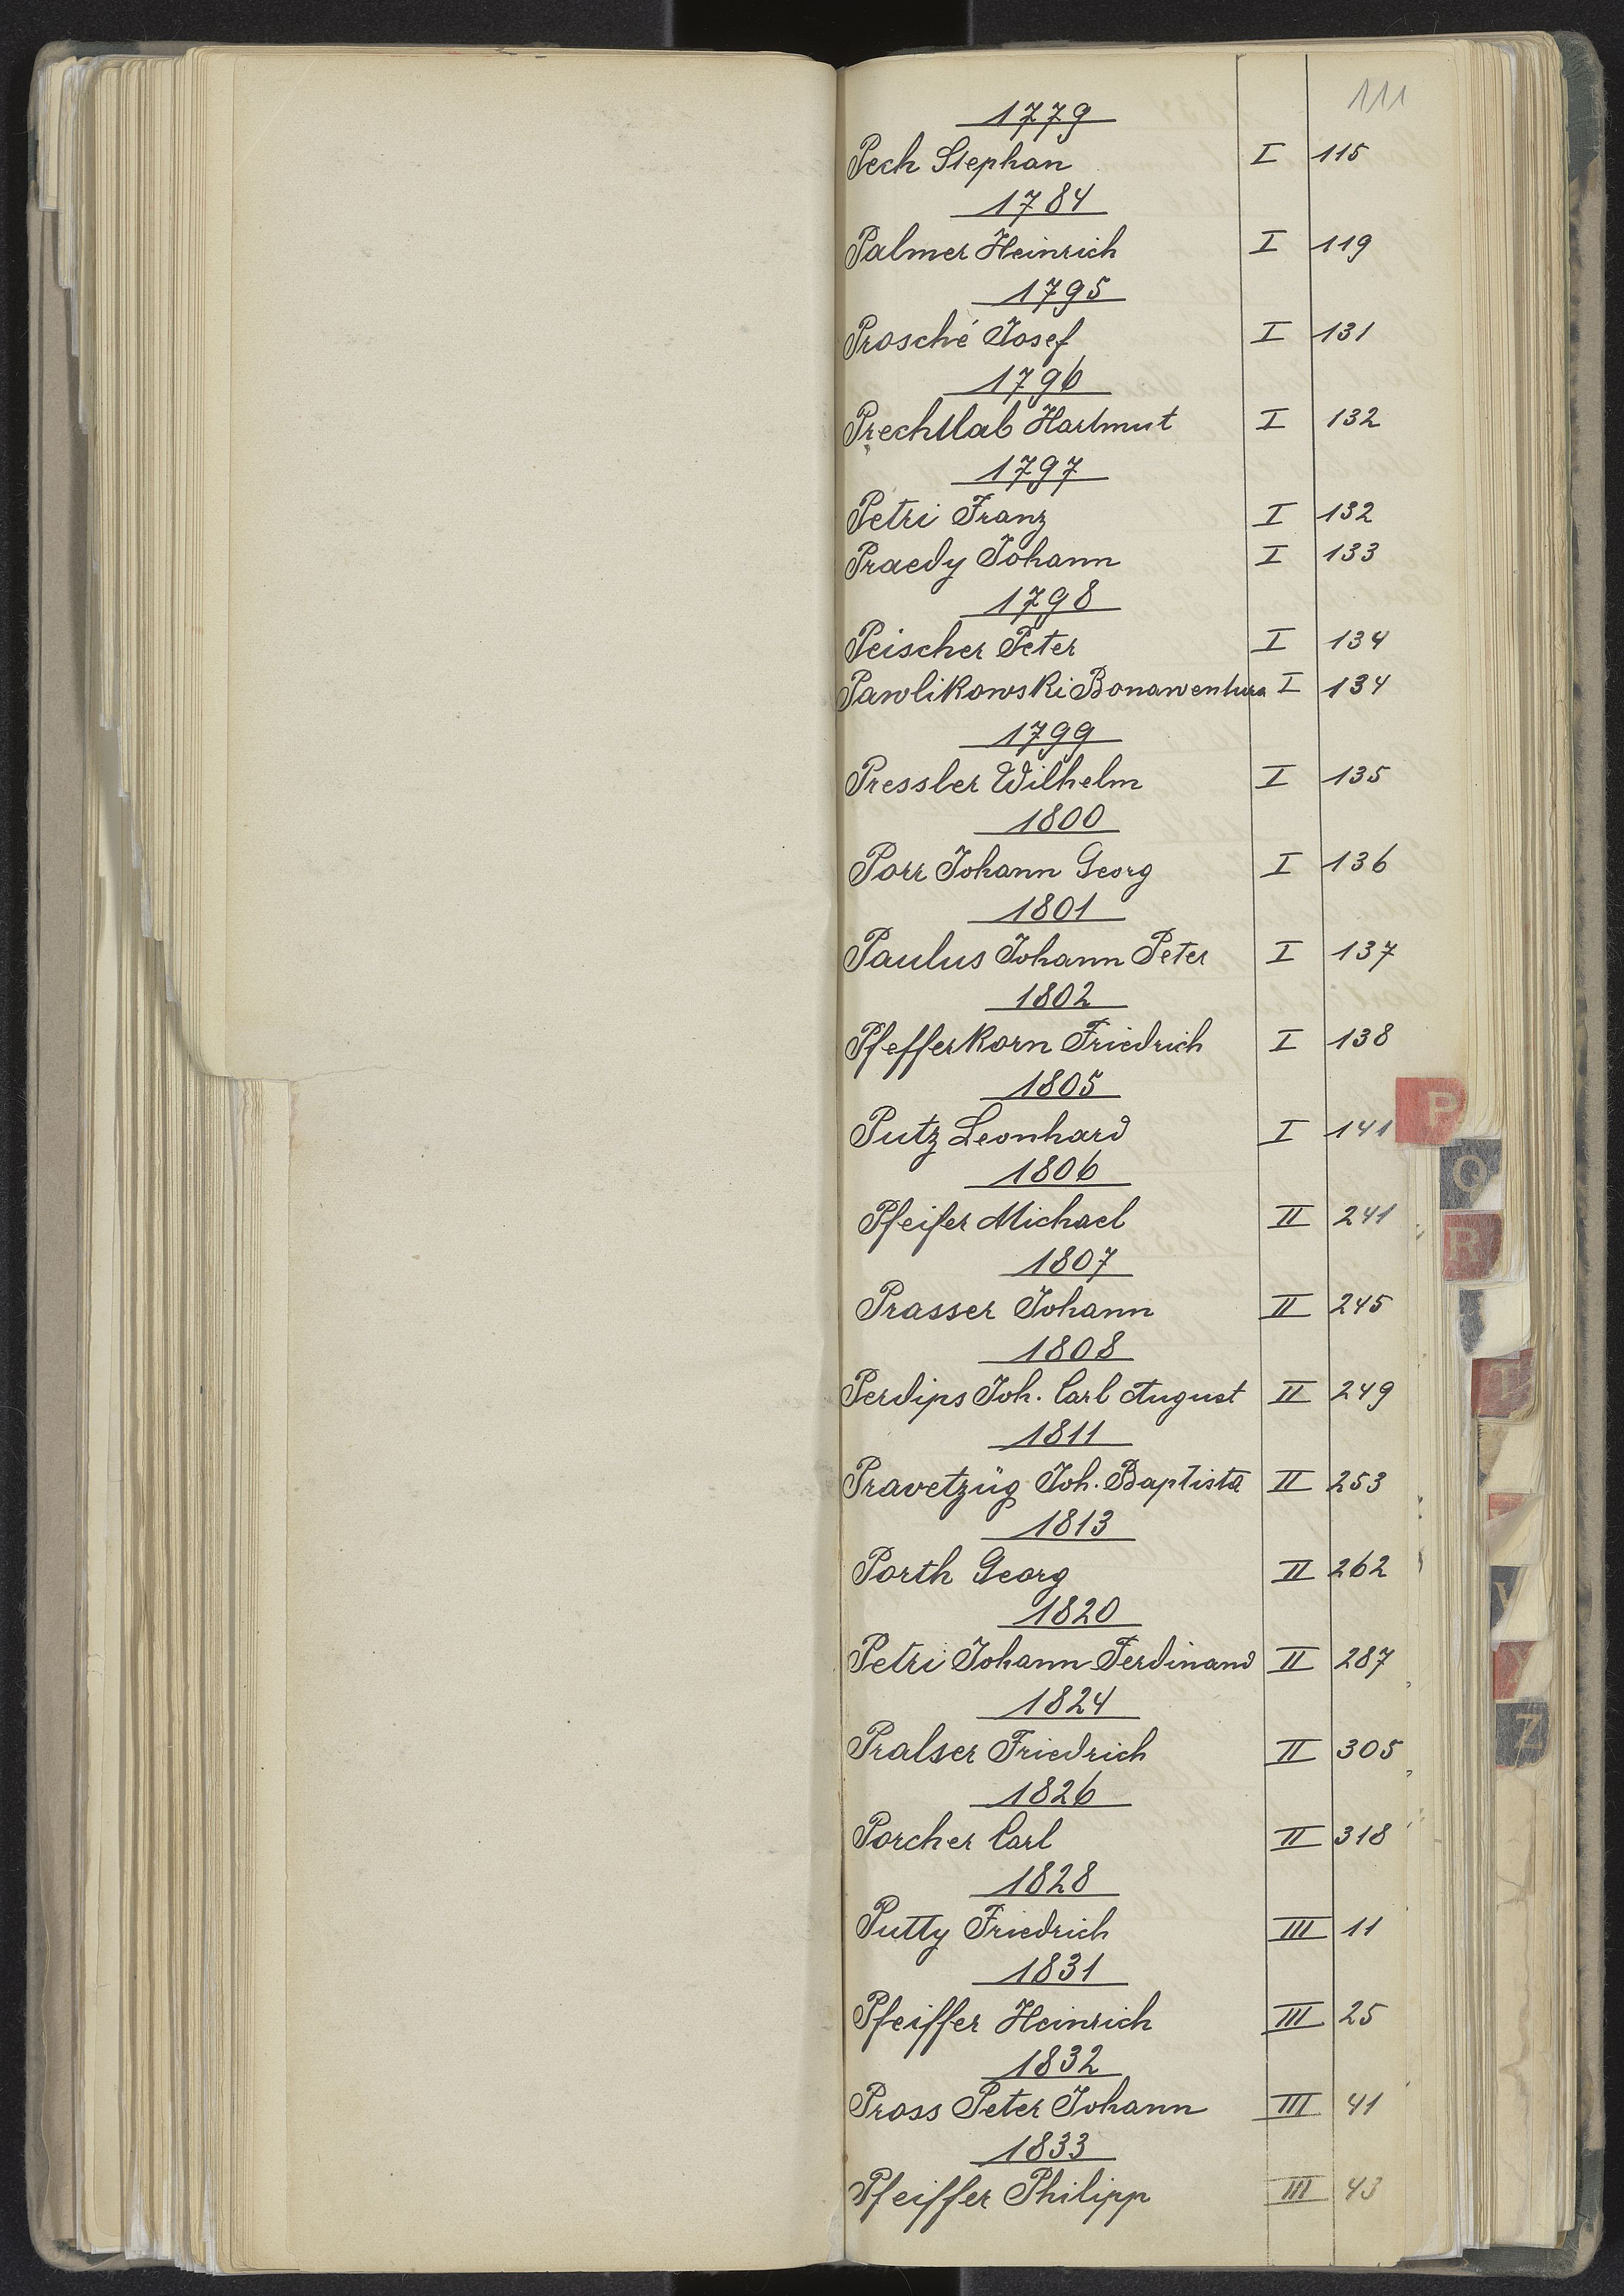 111
1779
Pech Stephan I 115
1784
Palmer Heinrich I 119
1795
Prosché Josef I 131
1796
Prechtlab Hartmut I 132
1797
Petri Franz I 132
Praedy Johann I 133
1798
Peischer Peter I 134
Pawlikowski Bonawentura I 134
1799
Pressler Wilhelm I 135
1800
Porr Johann Georg I 136
1801
Paulus Johann Peter I 137
1802
Pfefferkorn Friedrich I 138
1805
Putz Leonhard I 141
1806
Pfeifer Michael II 241
1807
Prasser Johann II 245
1808
Perdips Joh. Carl August II 249
1811
Pravetzüg Joh. Baptista II 253
1813
Porth Georg II 262
1820
Petri Johann Ferdinand II 287
1824
Pralser Friedrich II 305
1826
Porcher Carl II 318
1828
Putty Friedrich III 11
1831
Pfeiffer Heinrich III 25
1832
Pross Peter Johann III 41
1833
Pfeiffer Philipp III 43
P
Q
R
Z